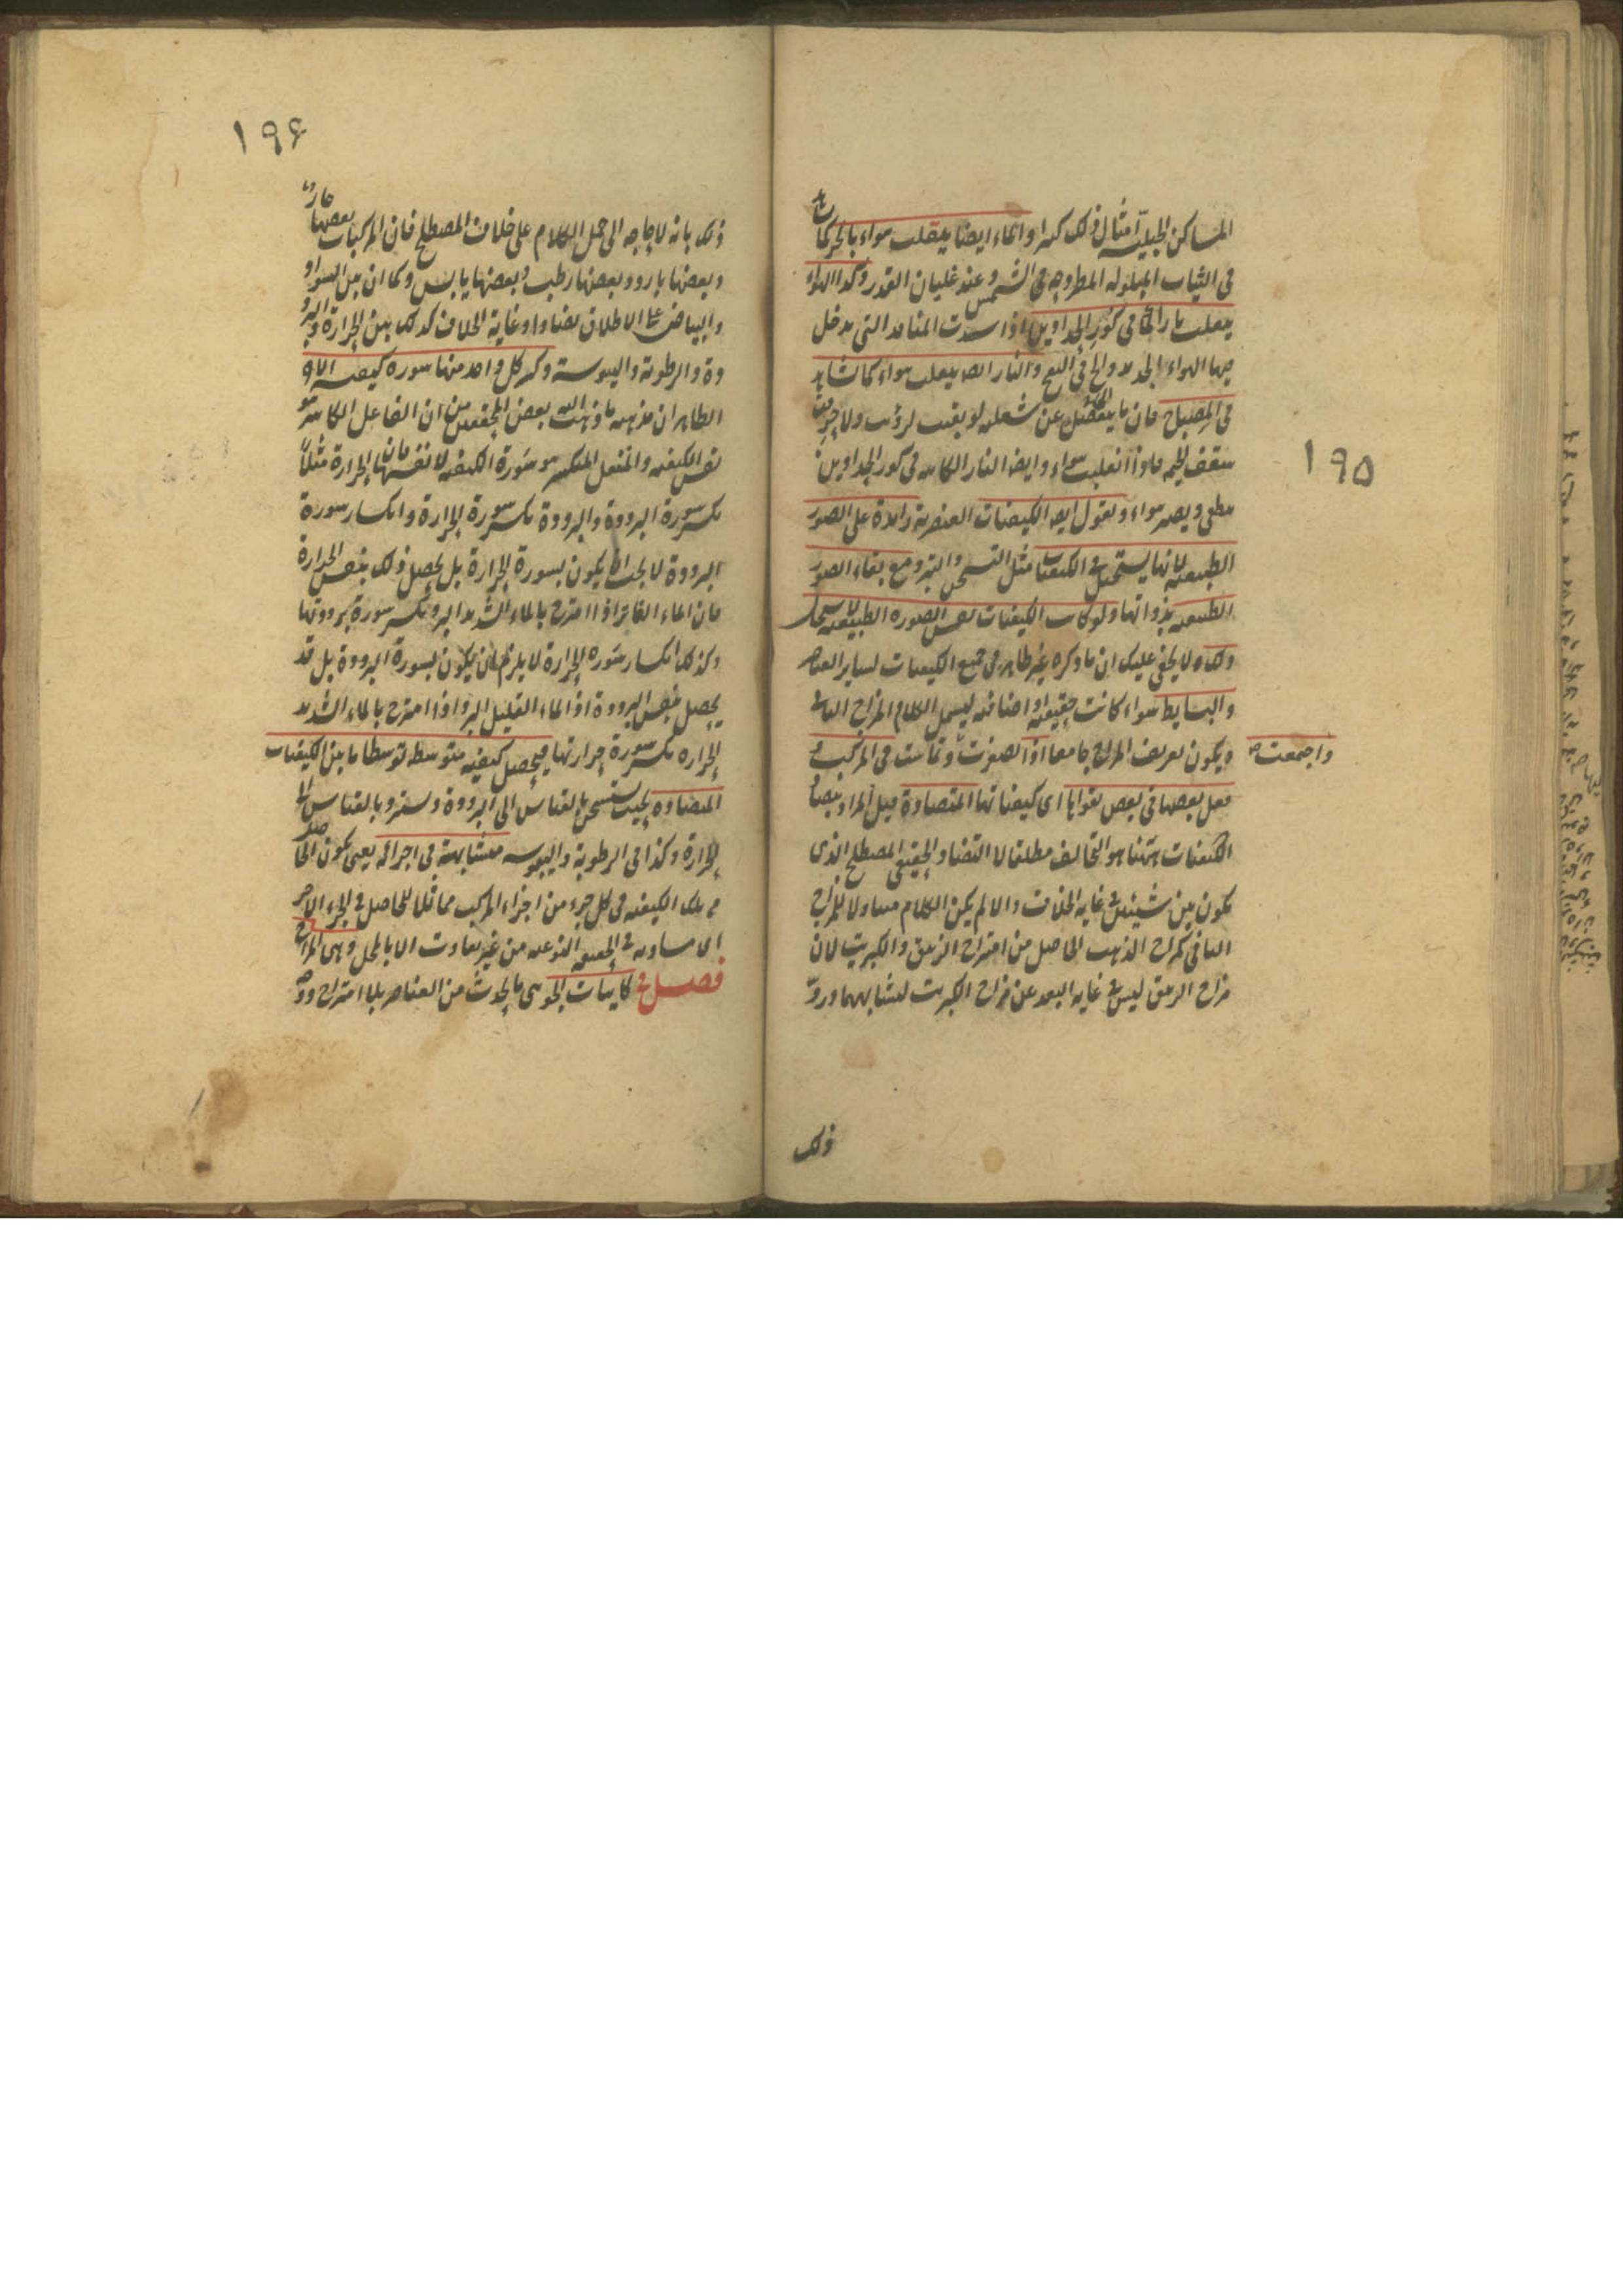 المساكن الجبلية امثال ذلك كثيرا والماء ايضا ينقلب هواء بالحركما
فى الثياب المبلوله المطروحه فى الشمس وعند غليان القدر وكذا الهواء
ينقلب نارا كما فى كور الحدادين اذا سدت المنافذ التى يدخل
فيها الهواء الجديد والح فى النفخ والنار ايضا ينقلب هواء كما نشاهد
فى المصباح فان ما ينفصل عن شعلته لو بقيت لرؤيت ولاحرقت
سقف الخيمه فاذا انقلبت هواء وايضا النار الكائنه فى كور الحدادين
تطفى ويصير هواء ونقول ايضا الكيفيات العنصرية زايدة على الصور
الطبيعيه لانها يستحيل فى الكيفيات مثل التسخن والتبرد مع بقاء الصور
الطبيعيه بذواتها ولو كانت الكيفيات نفس الصوره الطبيعيه لاستحال
ذلك ولا يخفى عليك ان ما ذكره غير ظاهر فى جميع الكيفيات لساير العناصر
والبسايط سواء كانت حقيقية او اضافيه ليشمل الكلام المزاج الثانى
ويكون تعريف المزاج جامعا اذا تصغرت وتماست فى المركب و
واجتمعت
فعل بعضها فى بعض بقواها اى كيفياتها المتضادة قيل المراد بتضاد
الكيفيات ههنا هو التخالف مطلقا لا التضاد الحقيقى المصطلح الذى
يكون بين شيئين فى غايه الخلاف والا لم يكن الكلام متناولا للمزاج
الثانى كمزاج الذهب الحاصل من امتزاج الزيبق والكبريت لان
مزاج الزيبق ليس فى غايه البعد عن مزاج الكبريت لتشابههما ورد
ذلك
١٩٥
١٩۶
ذلك بانه لا حاجه الى حمل الكلام على خلاف المصطلح فان المركبات بعضها حار
وبعضها بارد وبعضها رطب وبعضها يابس وكما ان بين السواد
والبياض على الاطلاق تضادا وغاية الخلاف كذلك بين الحرارة والبرو
دة والرطوبة واليبوسة وكسر كل واحد منها سورة كيفية الاخر
الظاهر ان مذهبه ما ذهب اليه بعض المحققين من ان الفاعل الكاسر هو
نفس الكيفيه والمنفعل المنكسر هو سورة الكيفيه لا نفسها فان الحرارة مثلا
تكسر سورة البرودة والبرودة تكسر سورة الحرارة وانكسار سورة
البرودة لا يجب ان يكون بسورة الحرارة بل يحصل ذلك بنفس الحرارة
فان الماء الفاتر اذا امتزج بالماء الشديد البرد تكسر سورة برودتها
وكذلك انكسار سوره الحرارة لا يلزم ان يكون بسورة البرودة بل قد
يحصل بنفس البرودة اذ الماء القليل البرد اذا امتزج بالماء الشديد
الحراره تكسر سورة حرارتها فيحصل كيفيه متوسطه توسطا ما بين الكيفيات
المتضاده بحيث يستسخن بالقياس الى البرودة ويستبرد بالقياس الى
الحرارة وكذا فى الرطوبة واليبوسه متشابهة فى اجزائه يعنى يكون الحاصل
من تلك الكيفيه فى كل جزء من اجزاء المركب مماثلا للحاصل فى الجزء الاخر
اى مساويه فى الحقيقه النوعيه من غير تفاوت الا بالمحل وهى المزاج
فصل فى كاينات الجو وهى ما يحدث من العناصر بلا امتزاج